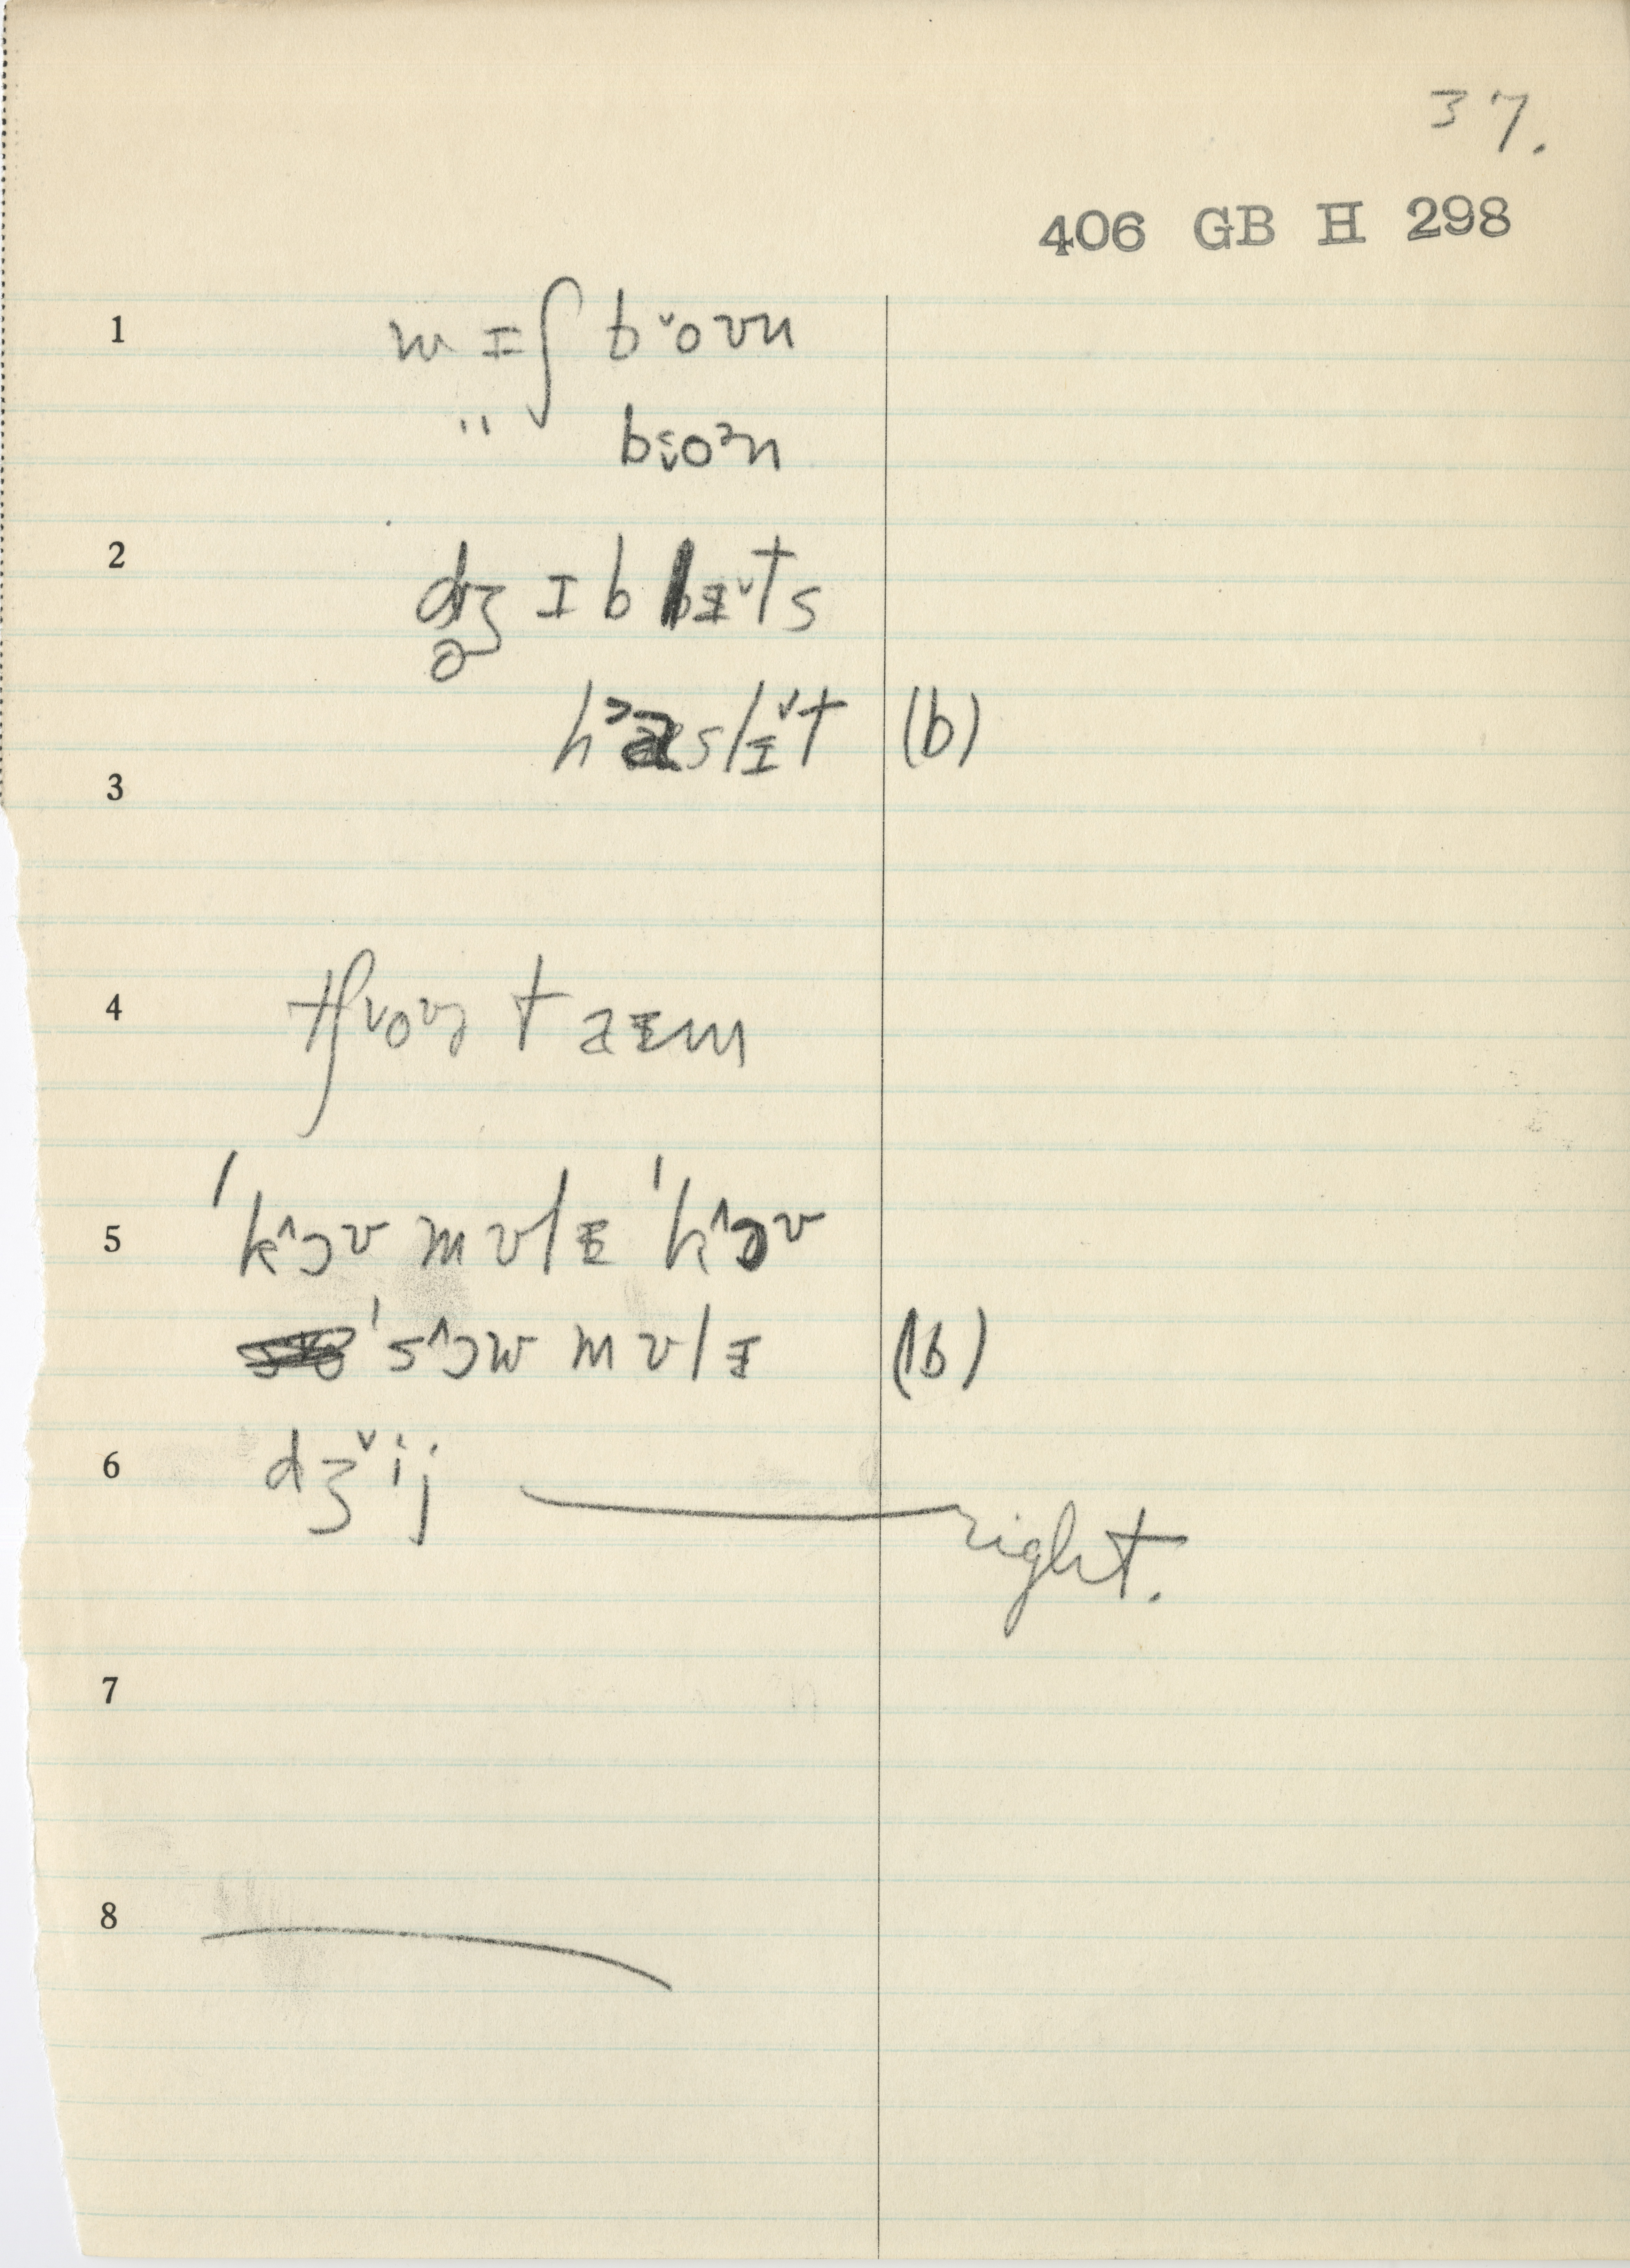 37.
406 GB H 298
1 wɪʃ b˅oʊn
" bɪ̬oᶷn
2 dʒ̥ɪb bɪ˅ts
hæ˃slɪ˅t (b)
3
4 tʃ˅oʊɚ taɪm
5 ˈk˄ɔʊ mʊlɪ ˈk˄ɔʊ
ˈs˄ɔw mʊlɪ (b)
6 dʒ˅ij right.
7
8